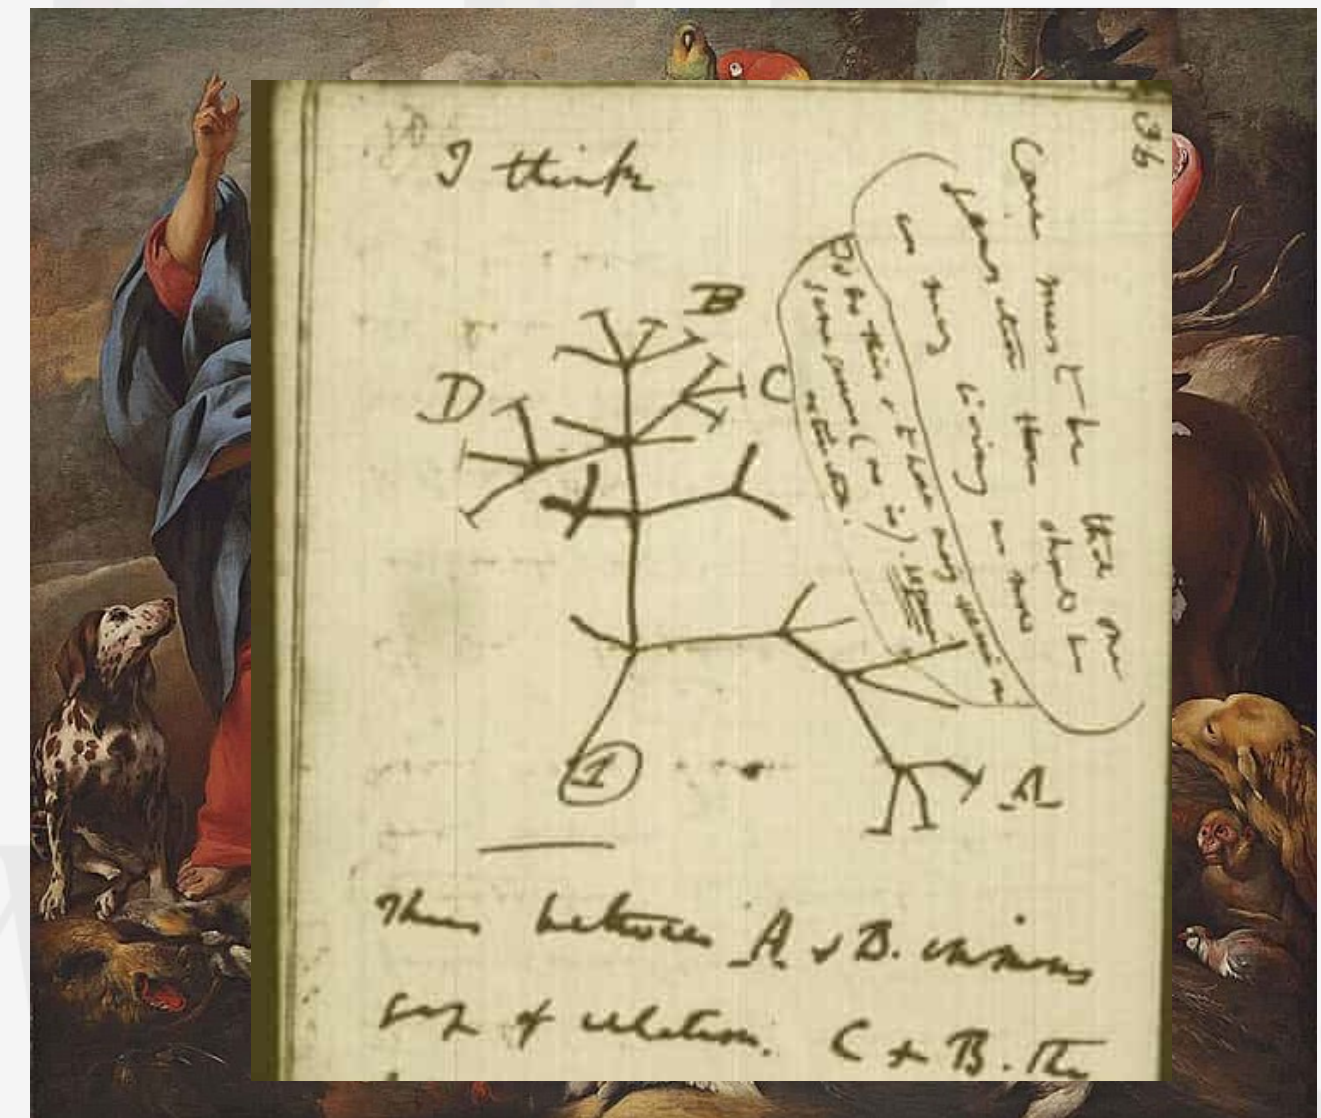 36
I think
B
C
D
A
1
Case must be that one
generation then should be
as many living as now
To do this & to have many species in
same genus (as is). requires
extinction.
Thus between A & B. immens
gap of relation. C & B. The